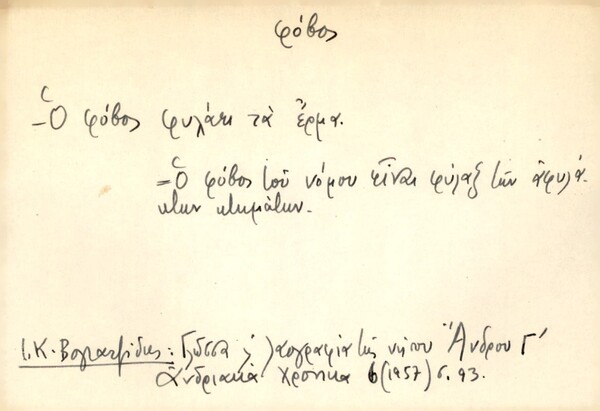 φόβος
- Ὁ φόβος φυλάει τὰ ἔρμα.
= Ὁ φόβος τοῦ νόμου εἶναι φύλαξ τῶν ἀφυλά-
κτων κτημάτων.-
Ι. Κ. Βογιατζίδης: Γλῶσσα ἡ λαογραφία τῆς νήσου Ἄνδρου Γ'
Ἀνδριακὰ Χρονικὰ 6 (1957) σ. 93.